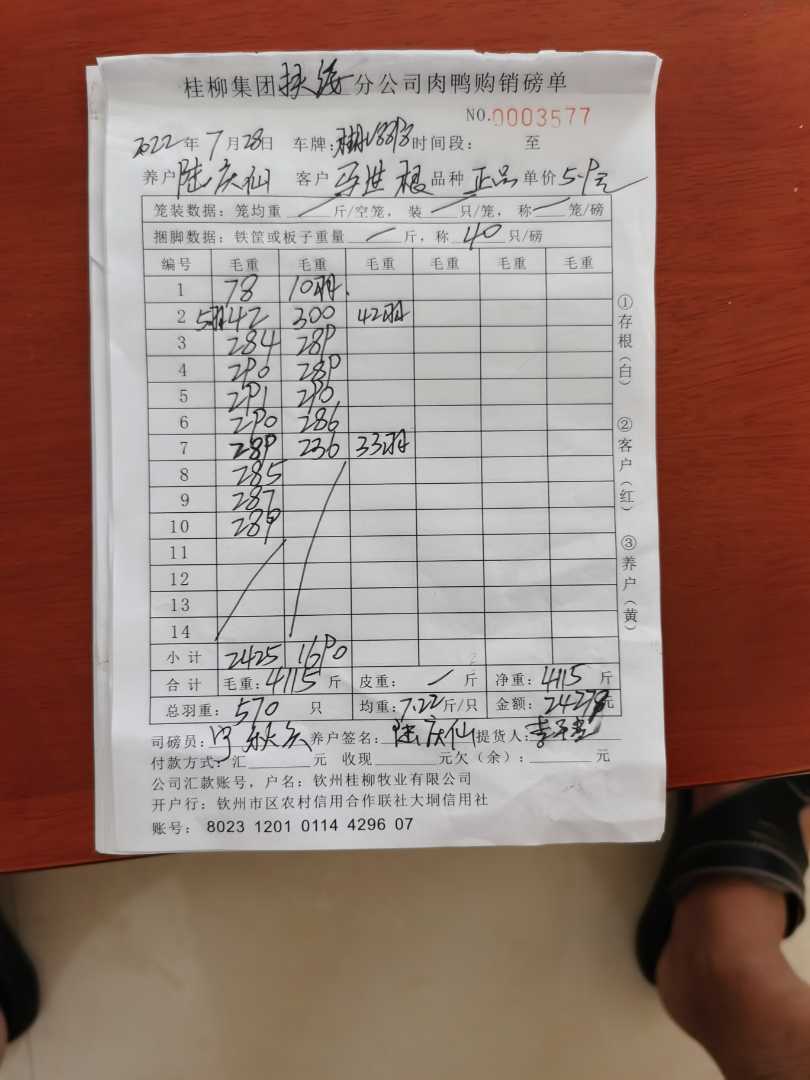 桂柳集团扶绥分公司肉鸭购销磅单
NO.0003577
2022年7月28日 车牌: 时间段: 至
养户陆庆仙 客户 马世根 品种 正品 单价5.9元
笼装数据: 笼均重 / 斤/空笼, 装 / 只/笼, 称 / 笼/磅
捆脚数据: 铁筐或板子重量 / 斤, 称 40 只/磅
编号 毛重 毛重 毛重 毛重 毛重 毛重
1 78 10羽.
2 5羽42 300 42羽
3 284 289
4 290 289
5 291 290
6 290 286
7 289 236 33羽
8 285
9 287
10 289
11
12
13
14
小计 2425 1690
合计 毛重:4115斤 皮重: / 斤 净重:4115斤
总羽重: 570 只 均重:7.22斤/只 金额:24278元
司磅员: 养户签名: 陆庆仙 提货人:
付款方式: 汇 元 收现 元欠(余): 元
公司汇款账号, 户名: 钦州桂柳牧业有限公司
开户行: 钦州市区农村信用合作联社大垌信用社
账号: 8023 1201 0114 4296 07
①存根(白) ②客户(红) ③养户(黄)